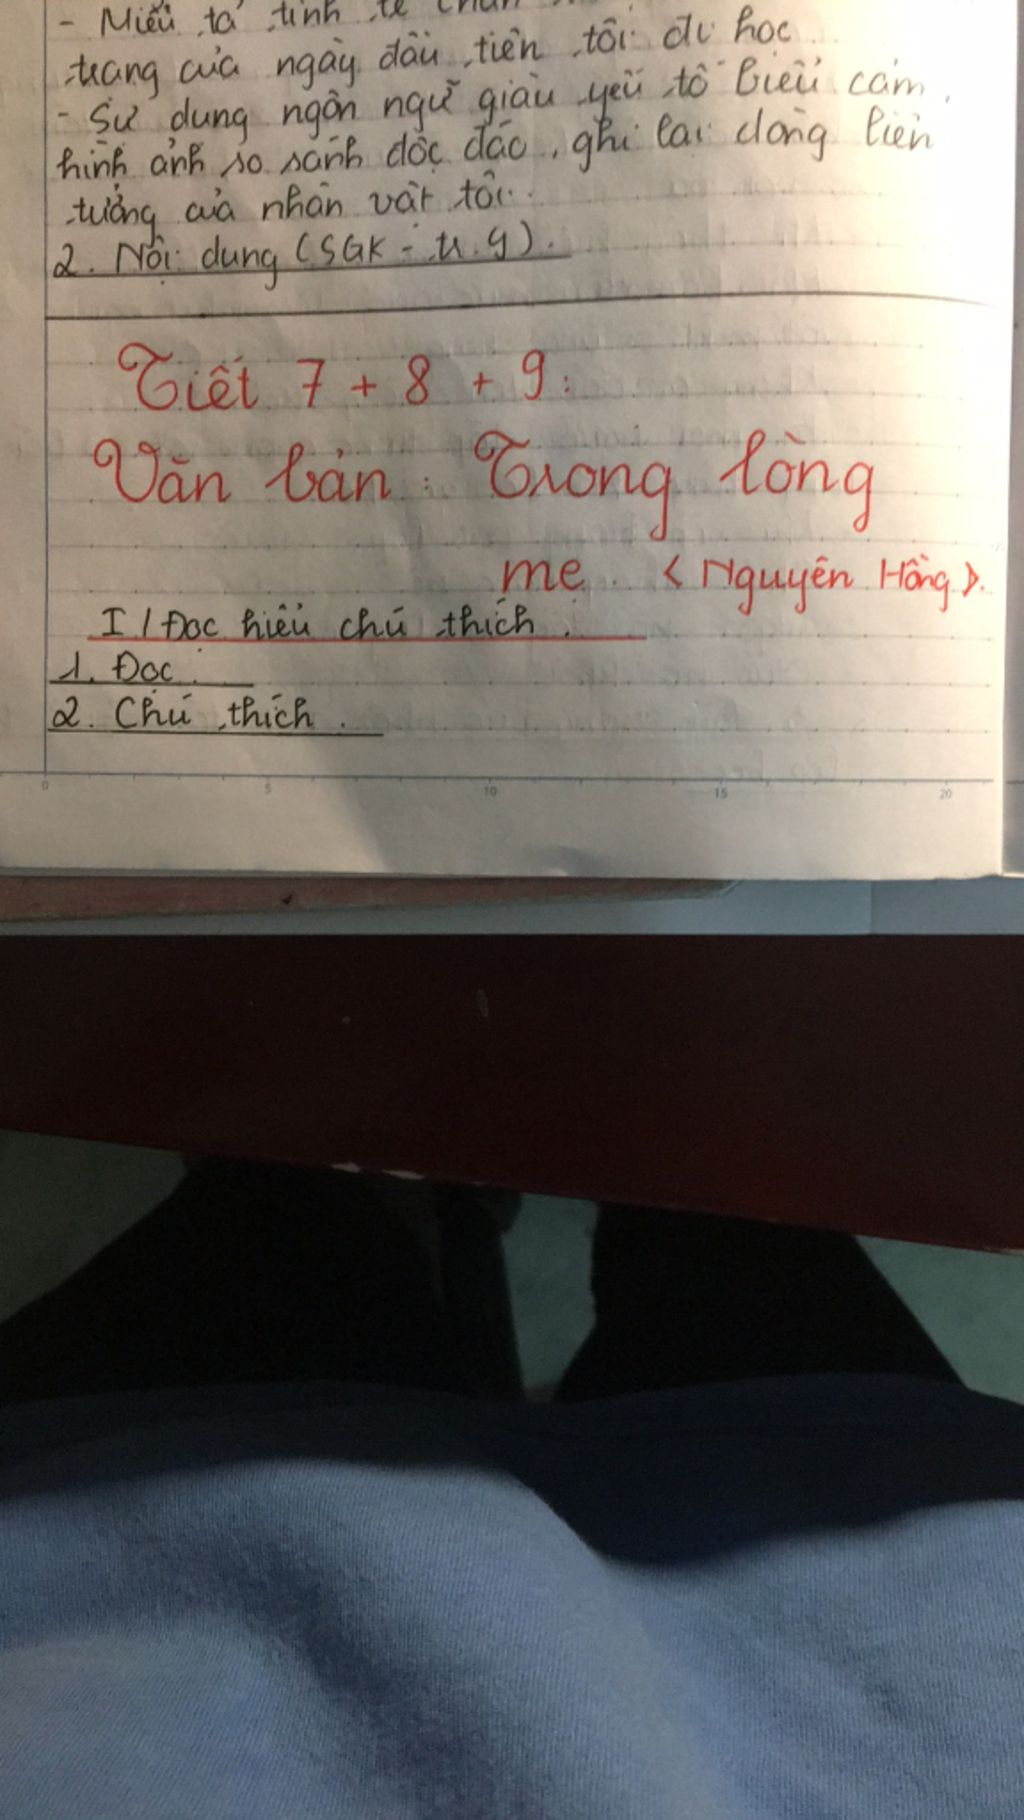 - Miêu tả tinh tế chân
trang của ngày đầu tiên tôi đi học.
- Sử dụng ngôn ngữ giàu yếu tố biểu cảm,
hình ảnh so sánh độc đáo, ghi lại dòng liên
tưởng của nhân vật tôi.
2. Nội dung (SGK - tr.9).
Tiết 7 + 8 + 9:
Văn bản: Trong lòng
mẹ. < Nguyên Hồng >.
I / Đọc hiểu chú thích.
1. Đọc.
2. Chú thích.
0 5 10 15 20